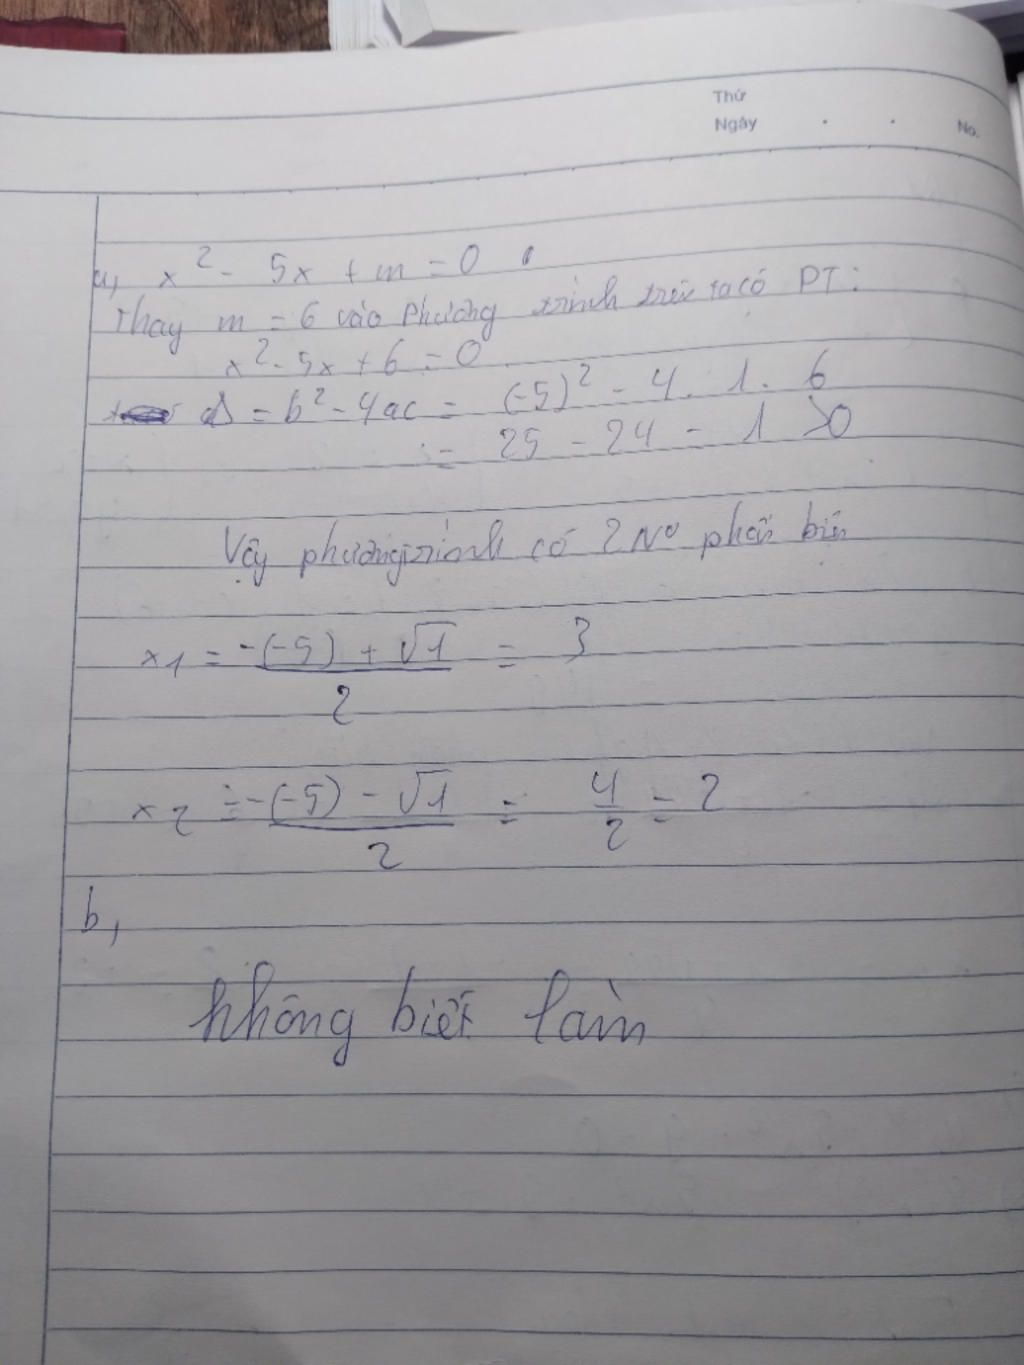 Thứ
Ngày . . No.
a, x² - 5x + m = 0
Thay m = 6 vào phương trình trên ta có PT:
x² - 5x + 6 = 0
Δ = b² - 4ac = (-5)² - 4. 1. 6
= 25 - 24 = 1 >0
Vậy phương trình có 2 No phân biệt
x1 = -(-5) + √1 / 2 = 3
x2 = -(-5) - √1 / 2 = 4/2 = 2
b,
không biết làm